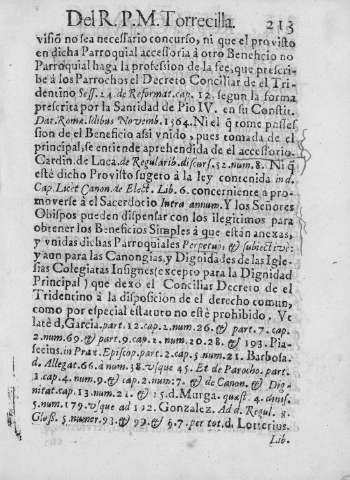 Del R. P. M. Torrecilla. 213
visiõ no sea necessario concurso, ni que el provisto
en dicha Parroquial accessoria à otro Beneficio no
Parroquial haga la profession de la fee, que prescri-
be à los Parrochos el Decreto Conciliar de el Tri-
dentino Sess. 24. de Reformat. cap. 12. segun la forma
prescrita por la Santidad de Pio IV. en su Constit.
Dat. Romæ. Idibus Novemb. 1564. Ni el q̃ tome posses-
sion de el Beneficio assi vnido, pues tomada de el
principal, se entiende aprehendida de el accessorio.
Cardin. de Luca. de Regularib. discurs. 52. num. 8. Ni q̃
estè dicho Provisto sugeto à la ley contenida in d.
Cap. Licet Canon. de Elect. Lib. 6. concerniente a pro-
moverse à el Sacerdotio Intra annum. Y los Señores
Obispos pueden dispensar con los ilegitimos para
obtener los Beneficios Simples à que están anexas,
y vnidas dichas Parroquiales Perpetuò, & subiectivè:
y aun para las Canongias, y Dignidades de las Igle-
sias Colegiatas Insignes (excepto para la Dignidad
Principal) que dexò el Conciliar Decreto de el
Tridentino à la disposicion de el derecho comun,
como por especial estatuto no estè prohibido. Ve
latè d, Garcia. part. 12. cap. 2. num. 26. & part. 7. cap.
2. num. 69. & part. 9. cap. 2. num. 20. 28. & 193. Pia-
secius. in Prax. Episcop. part. 2. cap. 5. num. 21. Barbosa.
d. Allegat. 66. à num. 38. vsque 45. Et de Parocho. part.
1. cap. 4. num. 9. & cap. 2. num. 7. & de Canon. & Dig-
nitat. cap. 13. num. 21. & 15. d. Murga. quæst. 4. duos.
5. num. 179. vsque ad 192. Gonzalez. Ad d. Regul. 8.
Gloss. 5. numer. 93. & 99. & §. 7. per tot. d. Lotterius.
Lib.